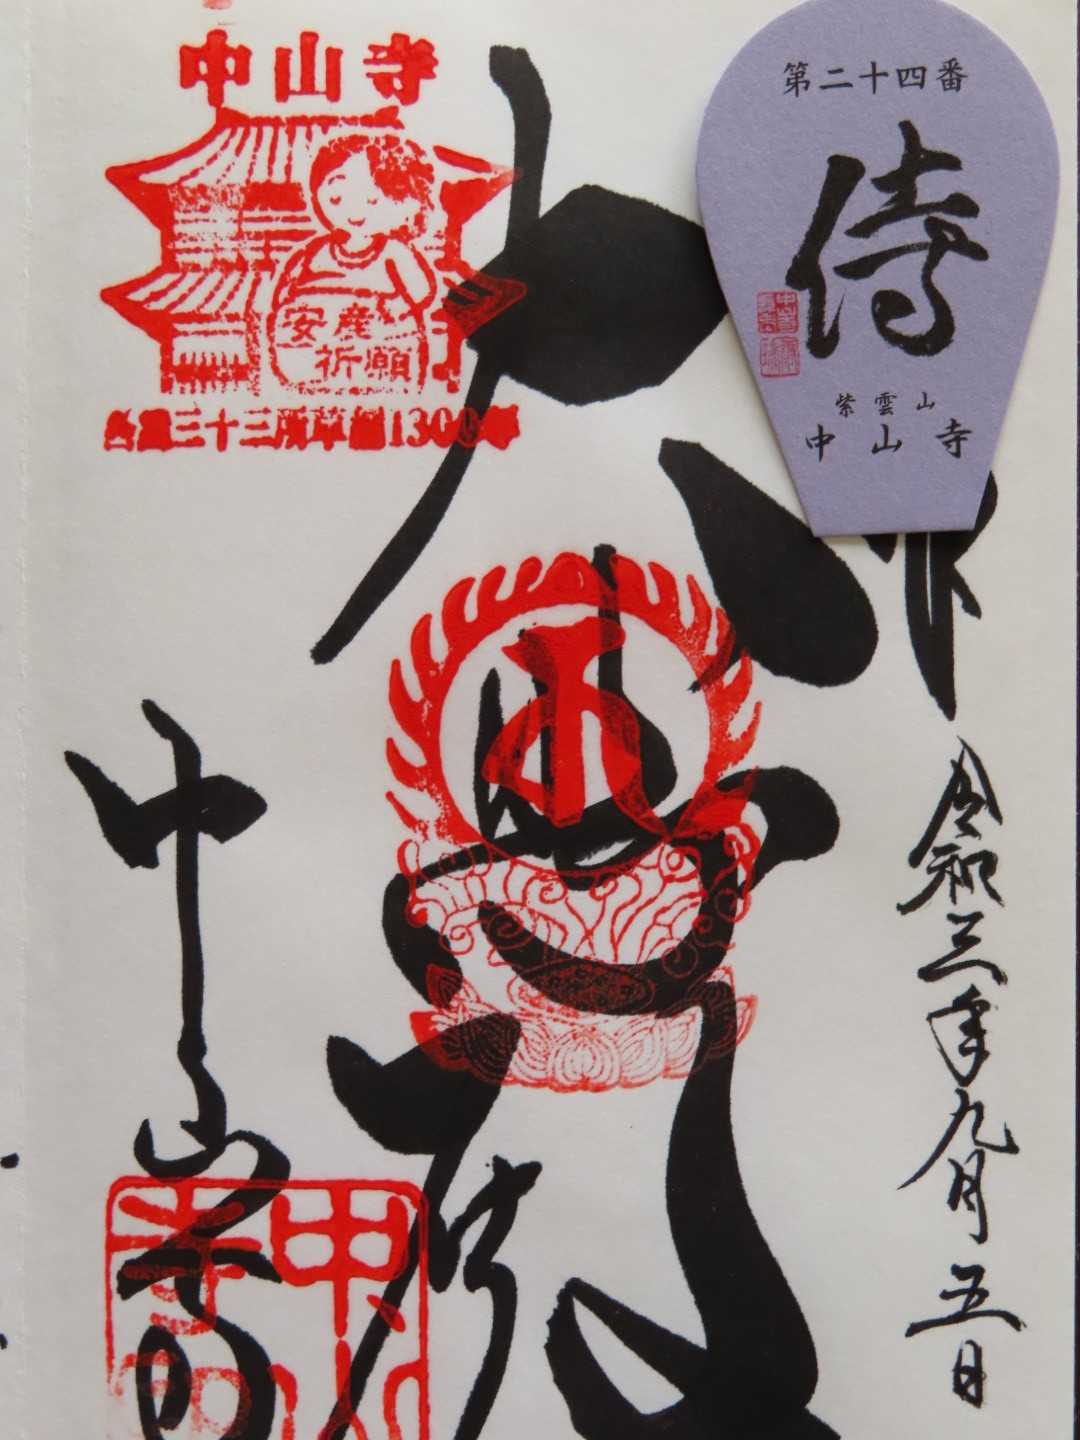 中山寺
安産
祈願
西国三十三所草創1300年
第二十四番
侍
紫雲山
中山寺
大悲殿
令和三年九月五日
中山寺